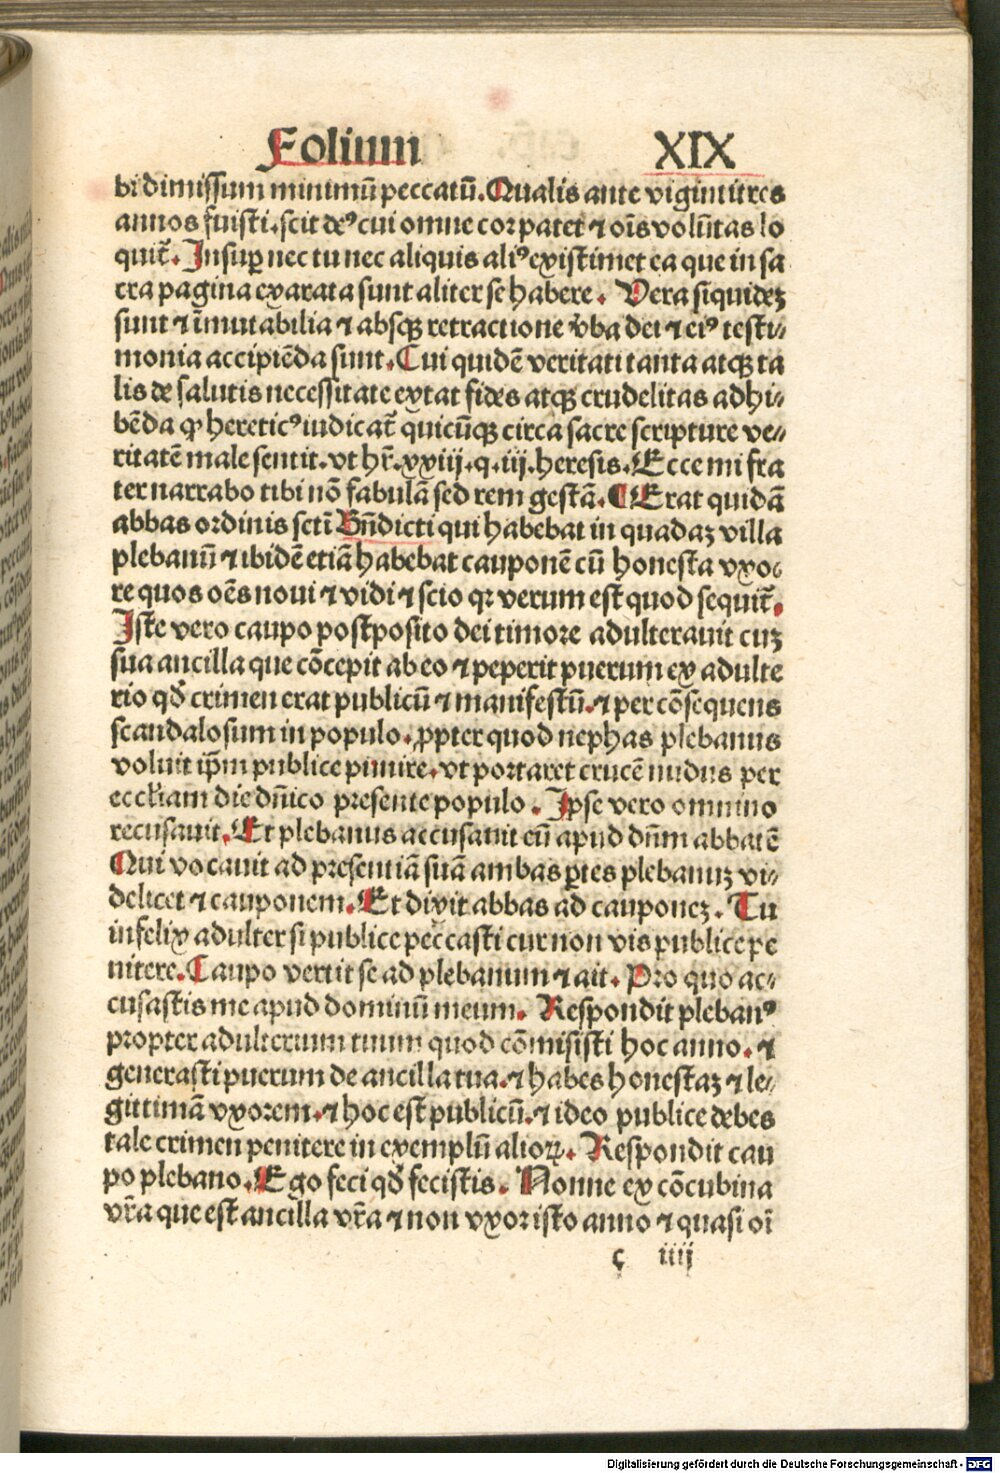 Folium XIX
bi dimissum minimū peccatū. Qualis ante viginti tres
annos fuisti. scit deꝰ cui omne cor patet ⁊ oīs volūtas lo
quit᷑. Insuꝑ nec tu nec aliquis aliꝰ existimet ea que in sa
cra pagina exarata sunt aliter se habere. Vera siquidez
sunt ⁊ īmutabilia ⁊ absqꝫ retractione v̄ba dei ⁊ eiꝰ testi⸗
monia accipiēda sunt. Cui quidē veritati tanta atqꝫ ta
lis de salutis necessitate extat fides atqꝫ crudelitas adhi⸗
bēda ꝙ hereticꝰ iudicat᷑ quicūqꝫ circa sacre scripture ve⸗
ritatē male sentit. vt hr̄. xxiij. q. iij. heresis. Ecce mi fra
ter narrabo tibi nō fabulā sed rem gestā. ¶ Erat quidā
abbas ordinis scti Bn̄dicti qui habebat in quadaꝫ villa
plebanū ⁊ ibidē etiā habebat cauponē cū honesta vxo⸗
re quos oēs noui ⁊ vidi ⁊ scio qꝛ verum est quod sequit᷑.
Iste vero caupo postposito dei timore adulterauit cuꝫ
sua ancilla que cōcepit ab eo ⁊ peperit puerum ex adulte
rio qd̄ crimen erat publicū ⁊ manifestū. ⁊ per cōsequens
scandalosum in populo. ꝓpter quod nephas plebanus
voluit ip̄m publice punire. vt portaret crucē nudus per
eccliam die dn̄ico presente populo. Ipse vero omnino
recusauit. Et plebanus accusauit eū apud dn̄m abbatē
Qui vocauit ad presentiā suā ambas ꝑtes plebanuꝫ vi⸗
delicet ⁊ cauponem. Et dixit abbas ad cauponeꝫ. Tu
infelix adulter si publice peccasti cur non vis publice pe
nitere. Caupo vertit se ad plebanum ⁊ ait. Pro quo ac⸗
cusastis me apud dominū meum. Respondit plebanꝰ
propter adulterium tuum quod cōmisisti hoc anno. ⁊
generasti puerum de ancilla tua. ⁊ habes honestaꝫ ⁊ le⸗
gittimā vxorem. ⁊ hoc est publicū. ⁊ ideo publice debes
tale crimen penitere in exemplū alioꝝ. Respondit cau
po plebano. Ego feci qd̄ fecistis. Nonne ex cōcubina
vr̄a que est ancilla vr̄a ⁊ non vxor isto anno ⁊ quasi oī
c iiij
Digitalisierung gefördert durch die Deutsche Forschungsgemeinschaft - DFG